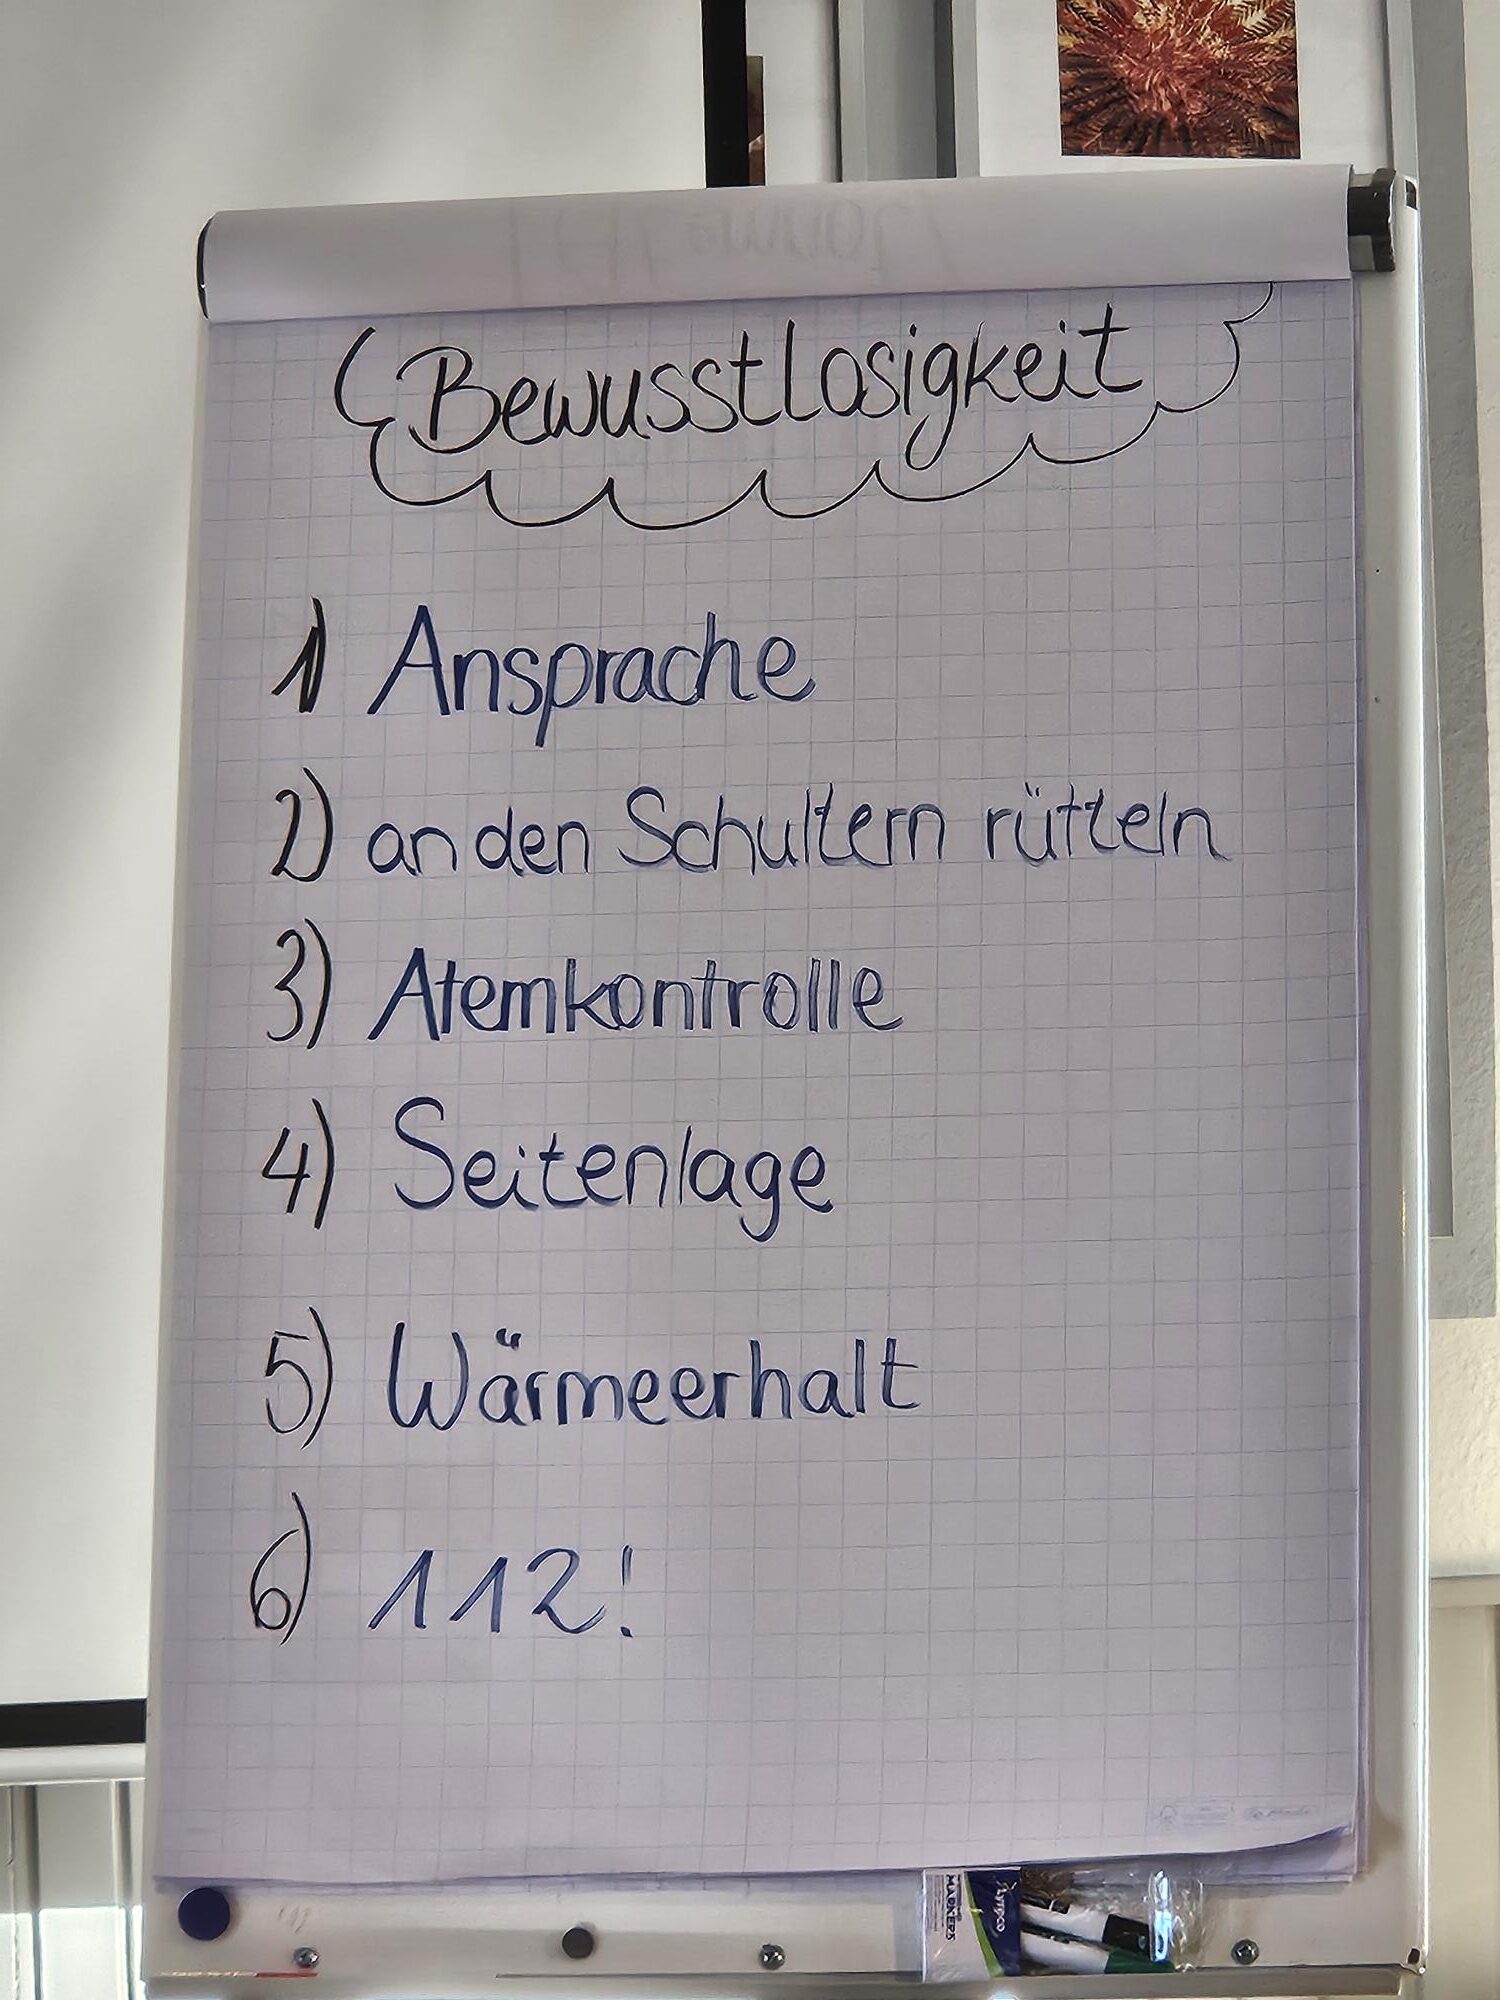 Bewusstlosigkeit
1) Ansprache
2) an den Schultern rütteln
3) Atemkontrolle
4) Seitenlage
5) Wärmeerhalt
6) 112!
MARKERS